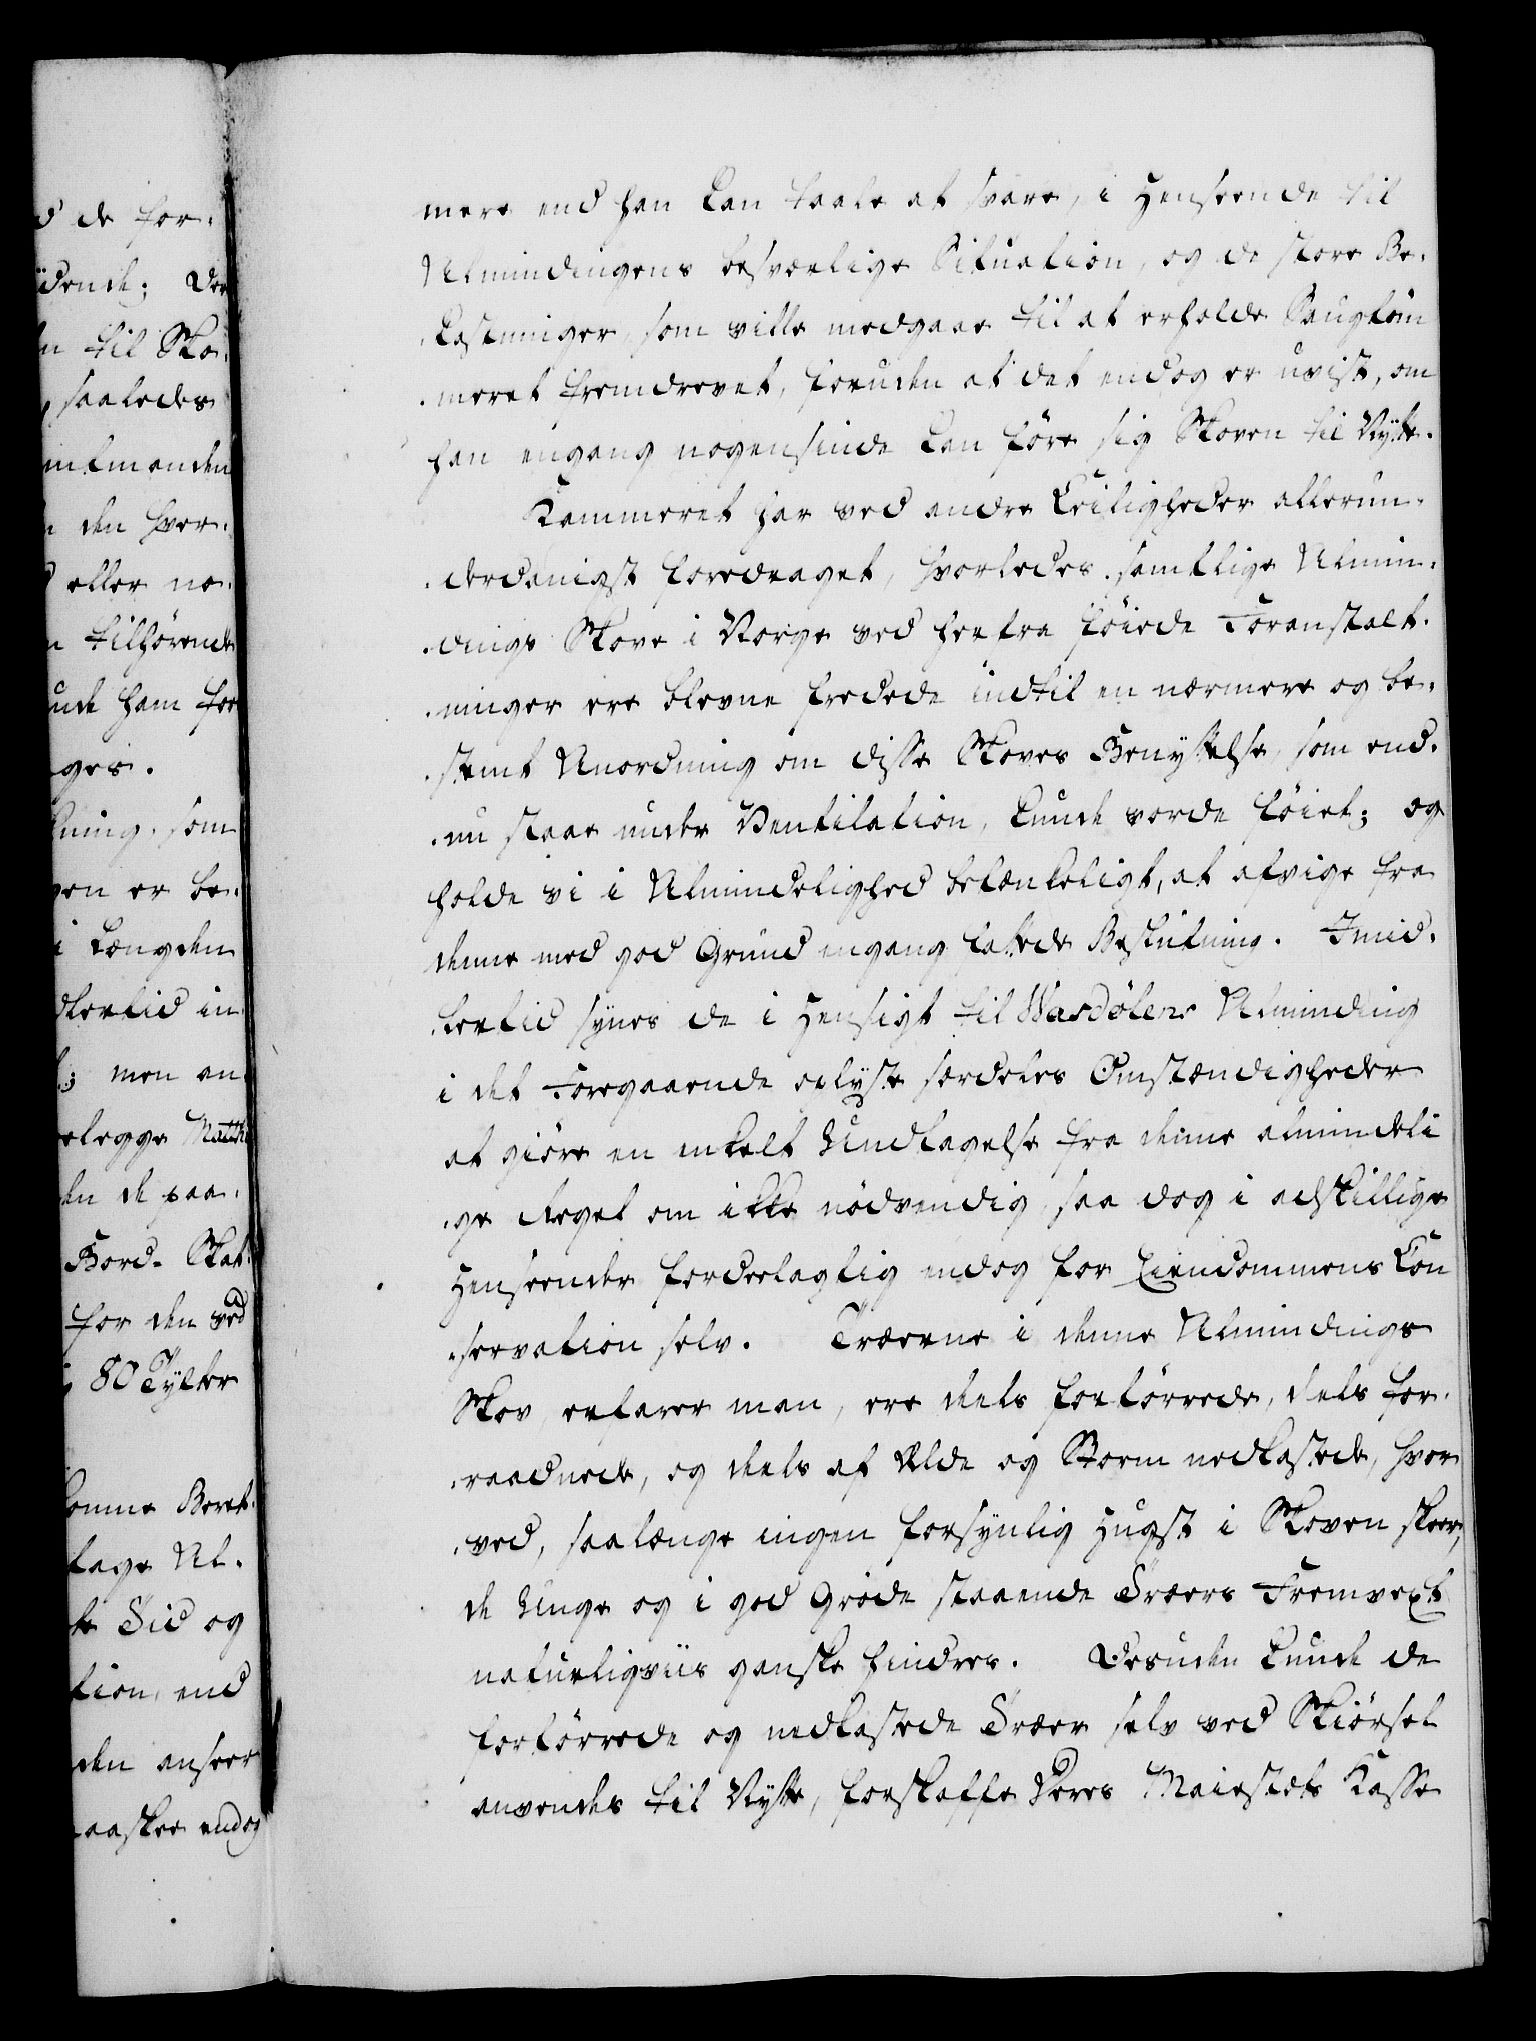 d de for-
ÿdende; der
n til Sko-
saaledes
mtmanden
n den hver-
d eller ne-
n tilhörende
unde ham for
ges.
ning, som
ven er be-
i Længden
dlertid in
; men an-
elegge Matth
den de paa-
Bord- Skat-
for den ved
80 Tylter
komne Beret-
tage Al-
te Tid og
tion, end
den anseer
maaskee endog
mere end han kan taale at svare, i Henseende til
Almindingens besværlige Situation, og de store Be-
kostninger, som ville medgaae til at erholde Saugtöm
meret fremdrevet, foruden at det endog er uvist, om
han engang nogensinde kan före sig Skoven til Nÿtte.
Kammeret har ved andre Leiligheder allerun-
derdanigst foredraget, hvorledes samtlige Almin-
dings Skove i Norge ved herfra föiede Foranstalt-
ninger ere blevne fredede indtil en nærmere og be-
stemt Anordning om disse Skoves Benyttelse, som end-
nu staar under Ventilation, kunde vorde föiet; og
holde vi i Almindelighed betænkeligt, at afvige fra
denne med god Grund engang fattede Beslutning. Imid-
lertid sÿnes de i Hensigt til Wasdölens Alminding
i det Foregaaende oplÿste særdeles Omstændigheder
at giöre en enkelt Undtagelse fra denne almindeli
ge Regel om ikke nödvendig, saa dog i adskillige
Henseender fordeelagtig endog for Eiendommens Con
servation selv. Træerne i denne Almindings
Skov, erfarer man, ere deels fortörrede, deels for-
raadnede, og deels af Ælde og Storm nedkastede, hvor
ved, saalænge ingen forsÿnlig Hugst i Skoven skeer,
de Unge og i god Gröde staaende Træers Fremvext
naturligviis ganske hindres. Desuden kunde de
fortörrede og nedkastede Træer selv ved Skiörsel
anvendes til Nÿtte, forskaffe Deres Maiestæts Kasse